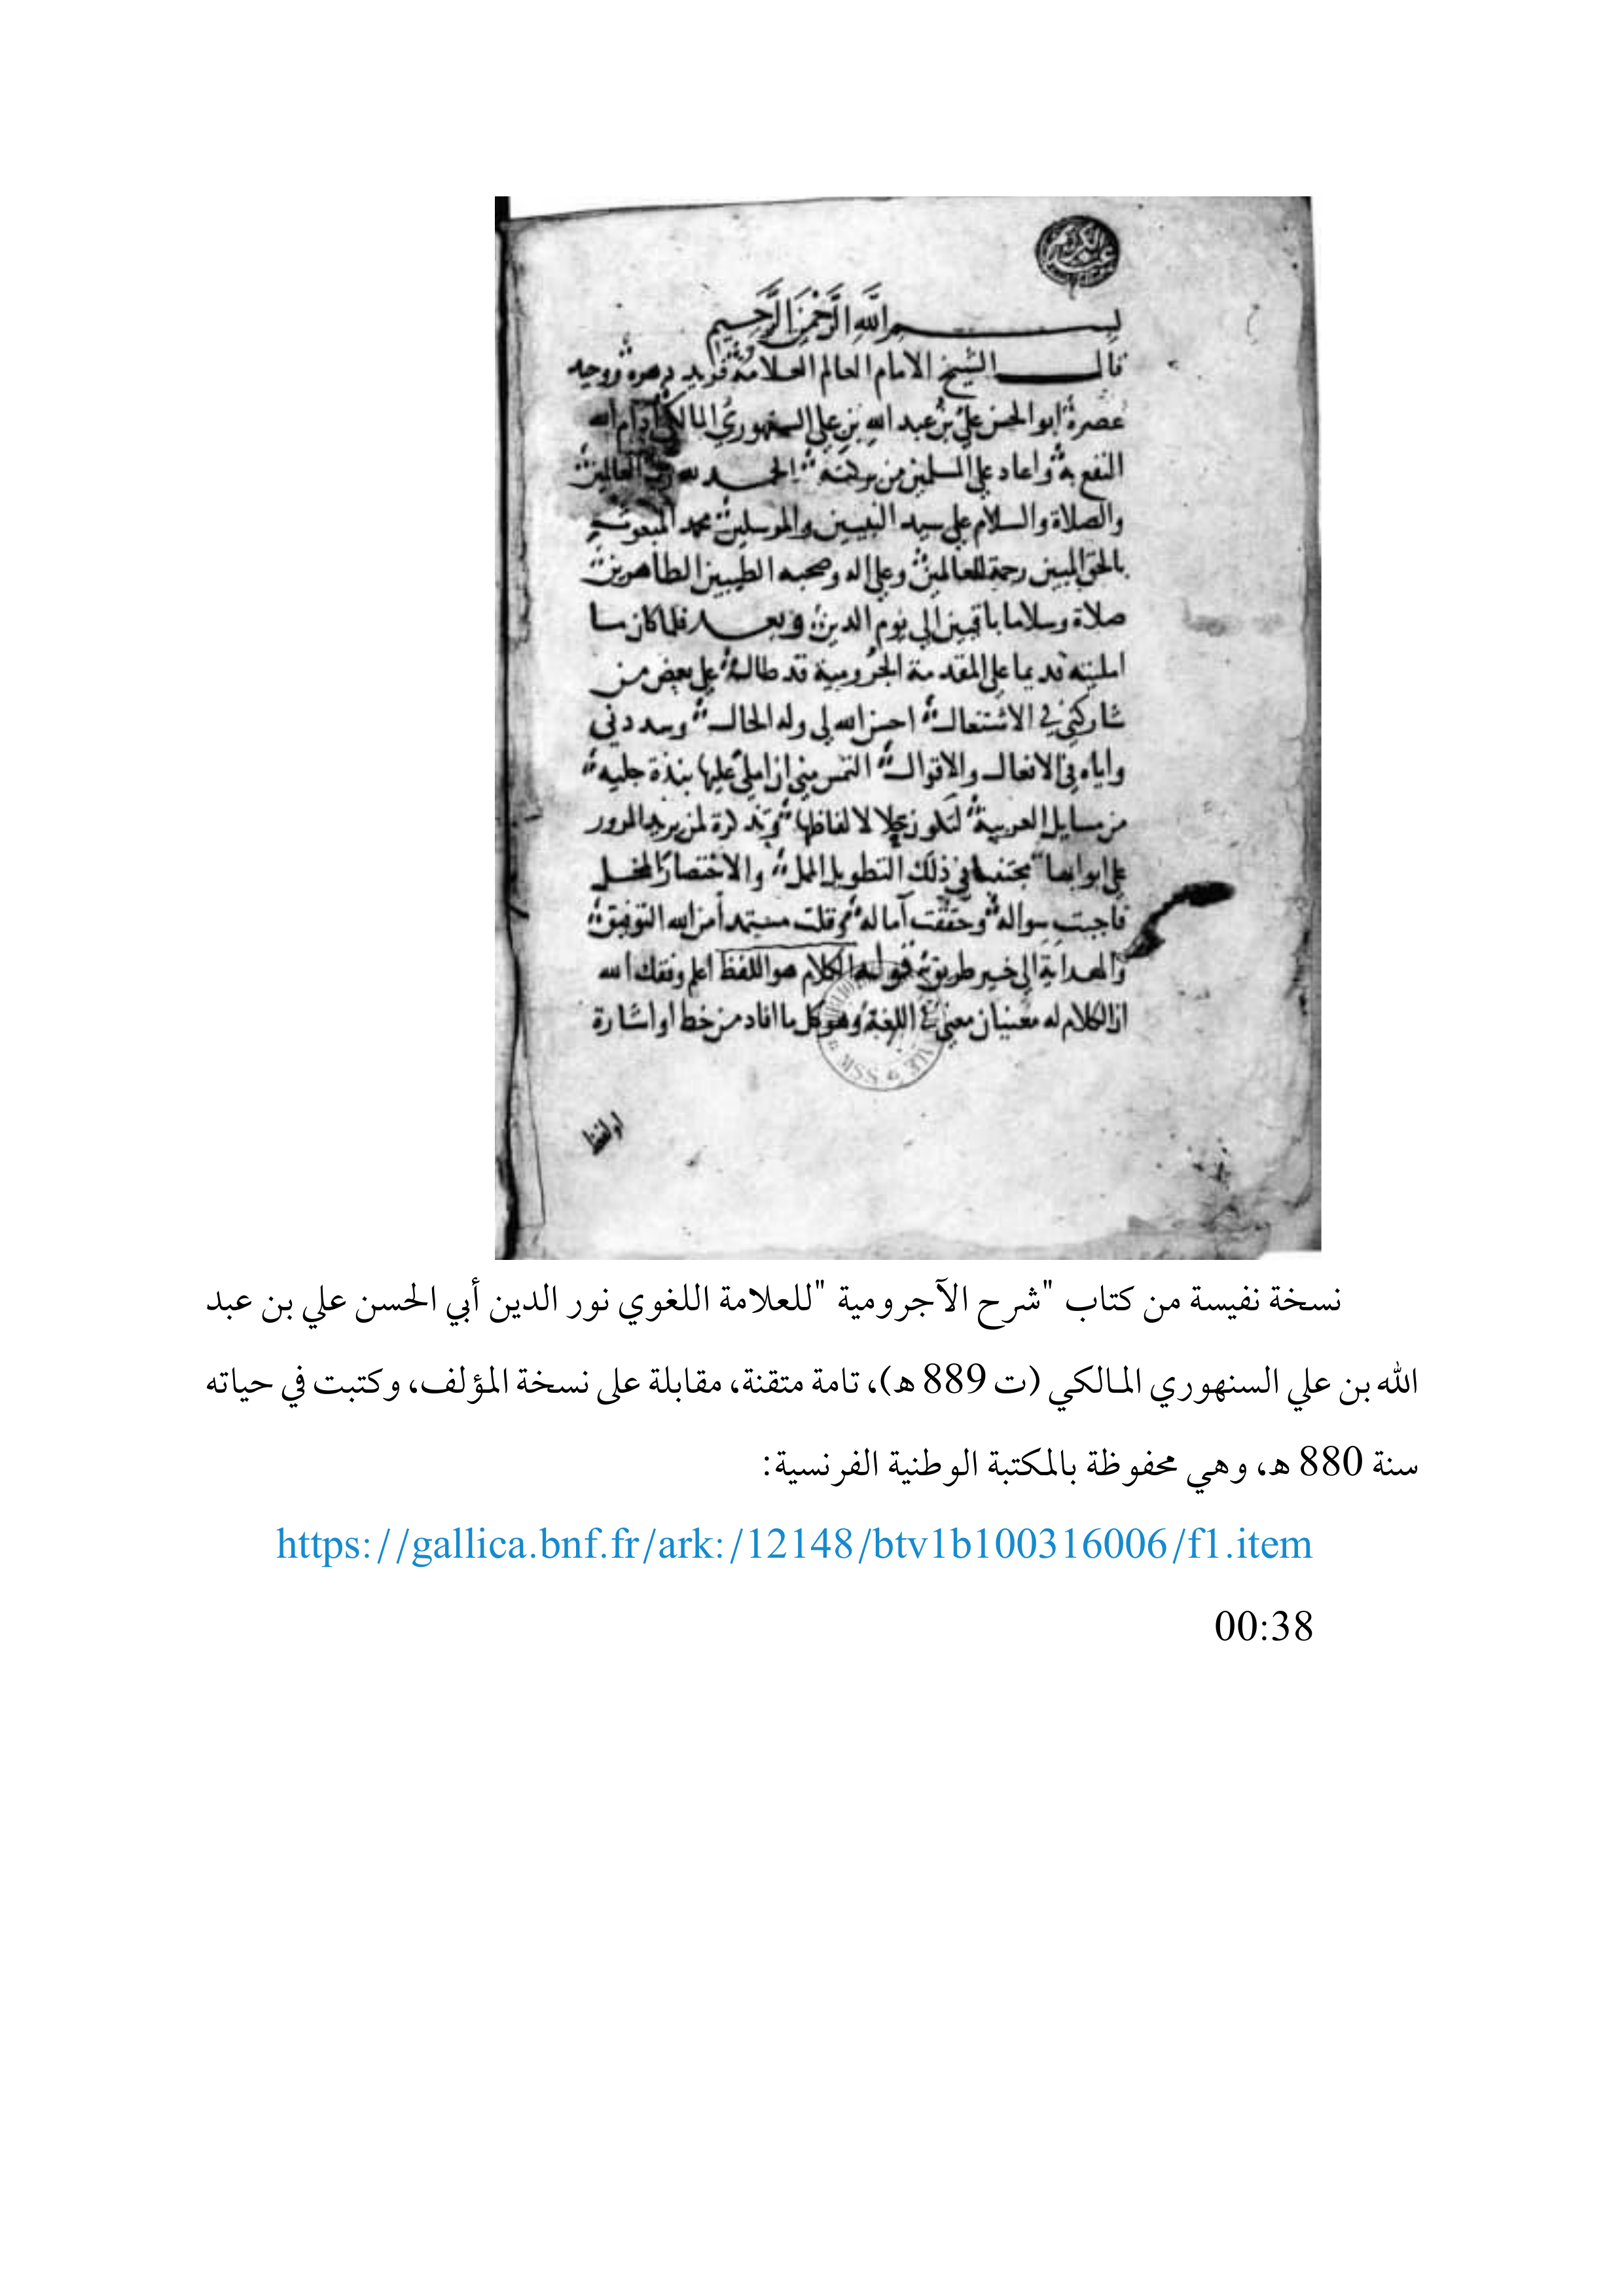 عبد الكريم
بسم الله الرَّحْمَنِ الرَّحِيم
قال الشيخ الامام العالم العلامة فريد دهره ووحيد
عصره ابو الحسن علي بن عبد الله بن علي السنهوري المالكي ادام الله
النفع به واعاد علي المسلمين من بركته الحمد لله رب العالمين
والصلاة والسلام علي سيد النبيين والمرسلين محمد المبعوث
بالحق المبين رحمة للعالمين وعلي اله وصحبه الطيبين الطاهرين
صلاة وسلاما باقيين الي يوم الدين وبعد فلما كان ما
امليته قديما علي المقدمة الجرومية قد طال علي بعض من
شاركني في الاشتغال احسن الله لي وله الحال وسددني
واياه في الافعال والاقوال التمس مني ان املي عليها نبذة جلية
من مسايل العربية لتكون حلا لالفاظها وتذكرة لمن يريد المرور
علي ابوابها مجتنبا في ذلك التطويل الممل والاختصار المخل
فاجبت سواله وحققت آماله وقلت مستمدا من الله التوفيق
والهداية الي خير طريق قوله الكلام هو اللفظ اعلم وفقك الله
ان الكلام له معنيان معني في اللغة وهو كل ما افاد من خط او اشارة
او لفظ
نسخة نفيسة من كتاب "شرح الآجرومية "للعلامة اللغوي نور الدين أبي الحسن علي بن عبد
الله بن علي السنهوري المالكي (ت 889 هـ)، تامة متقنة، مقابلة على نسخة المؤلف، وكتبت في حياته
سنة 880 هـ، وهي محفوظة بالمكتبة الوطنية الفرنسية:
https://gallica.bnf.fr/ark:/12148/btv1b100316006/f1.item
00:38